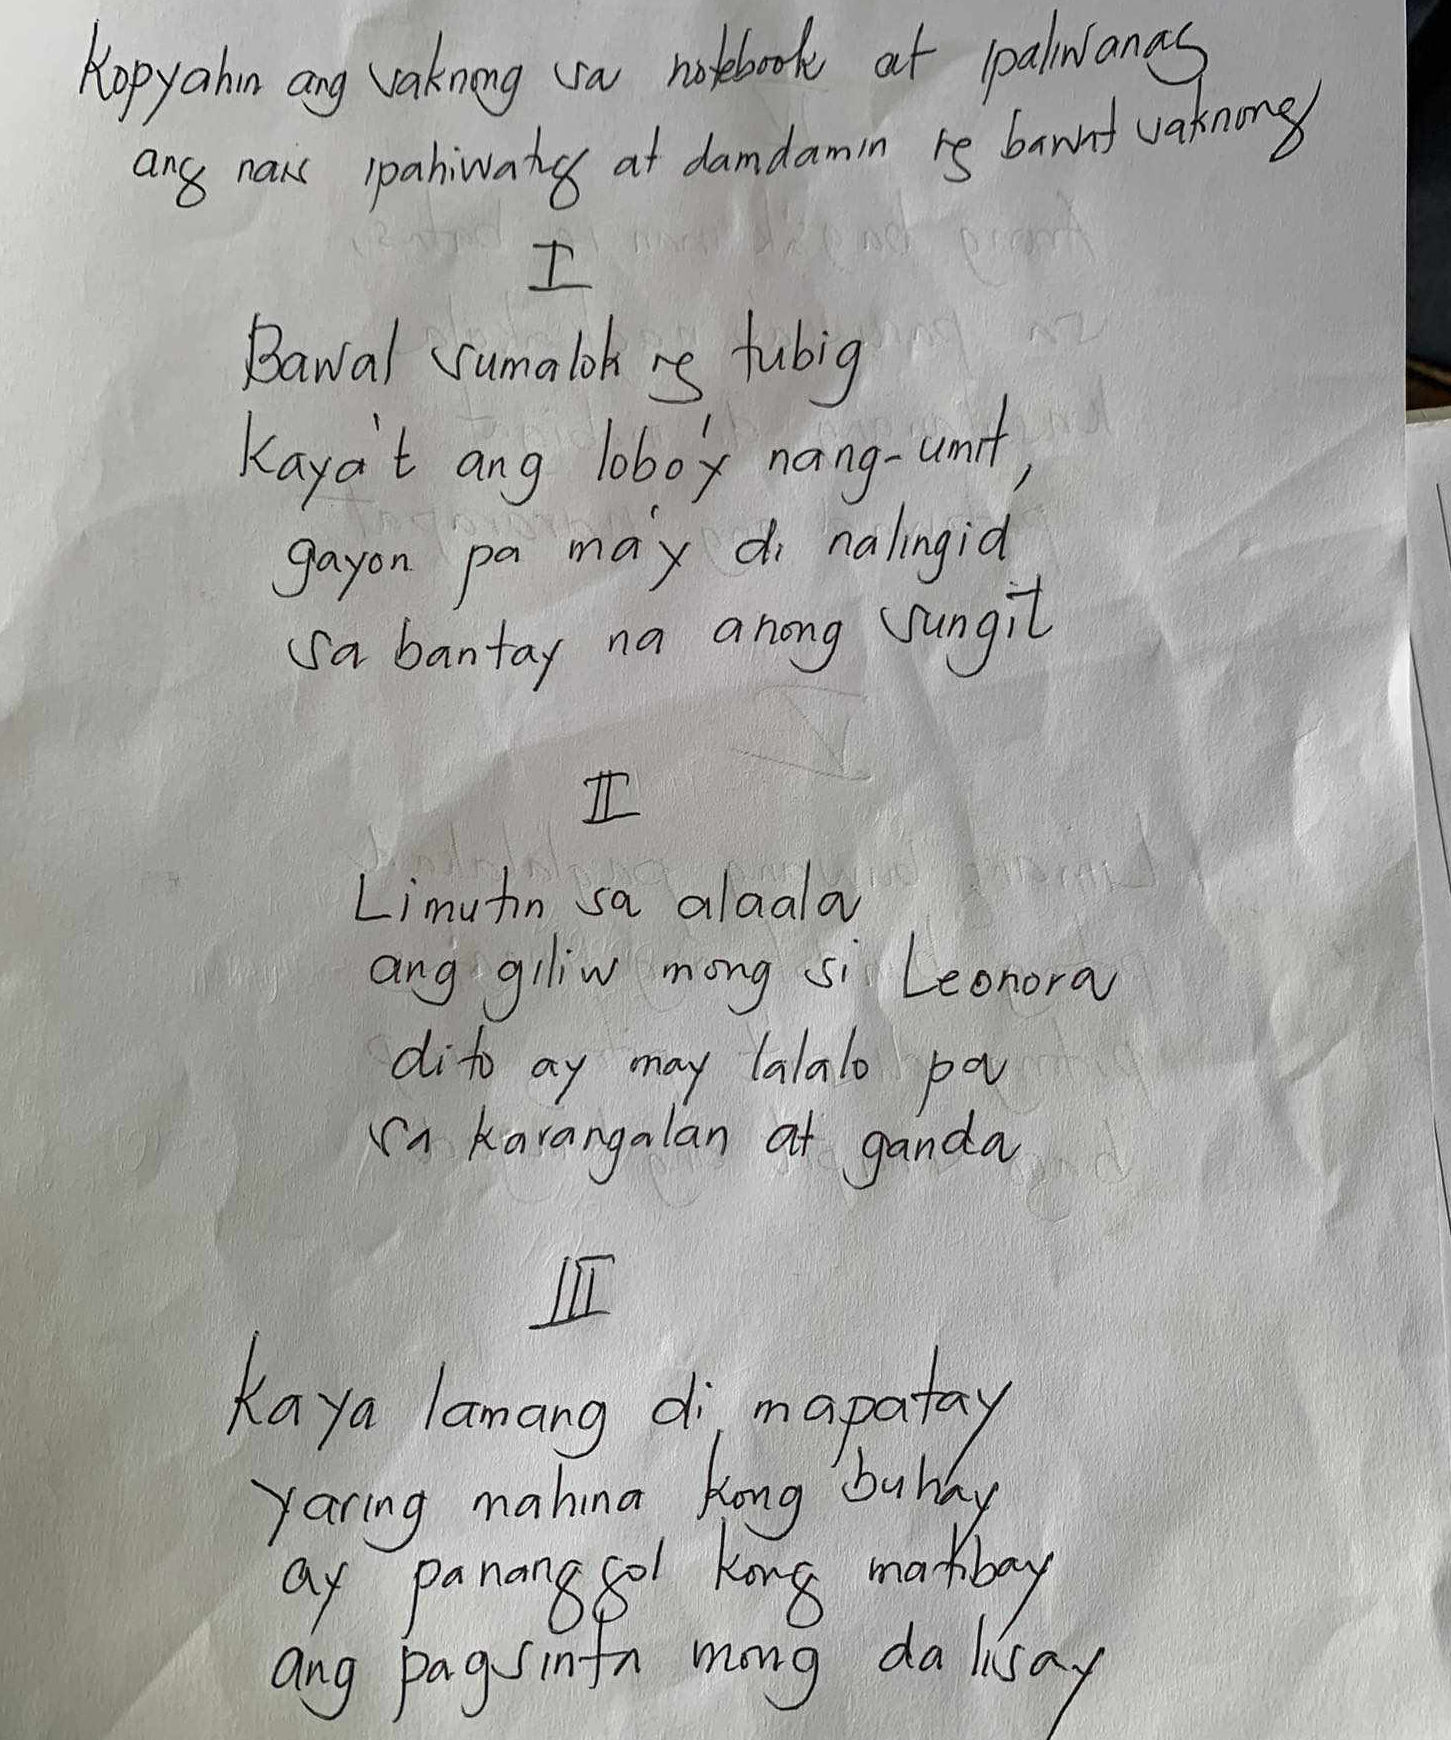 Kopyahin ang saknong sa notebook at ipaliwanag
ang nais ipahiwatig at damdamin ng bawat saknong
I
Bawal sumalok ng tubig
kaya't ang lobo'y nang-umit,
gayon pa ma'y di nalingid
sa bantay na anong sungit
II
Limutin sa alaala
ang giliw mong si Leonora
dito ay may lalalo pa
sa karangalan at ganda
III
Kaya lamang di mapatay
yaring mahina kong buhay
ay pananggol kong matibay
ang pagsinta mong dalisay